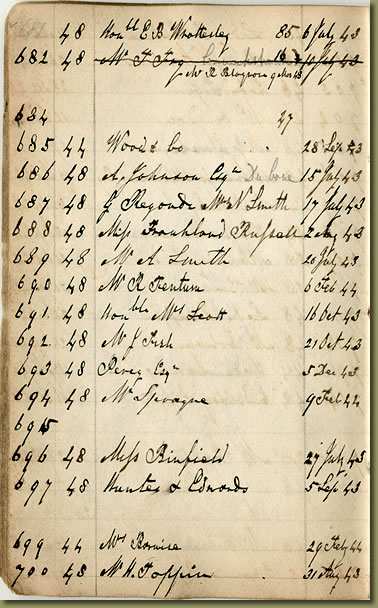 48 Honbl E B Wrottesley 85 6 July 43
682 48 Mr T Fry 16 11 July 43
Mr R Blagrove 9 Mar 48
684 27
685 44 Wood & Co 28 Sep 43
686 48 A. Johnson Esqr 15 July 43
687 48 G Regondi Mr N Smith 17 July 43
688 48 Miss Frankland Russell 2 Aug 43
689 48 Mr A Smith 20 July 43
690 48 Mr R Fentum 6 Feb 44
691 48 Honble Mrs Scott 16 Oct 43
692 48 Mr J Fish 21 Oct 43
693 48 Pever Esqr 5 Dec 43
694 48 Mr Sprague 9 Feb 44
695
696 48 Miss Binfield 27 July 43
697 48 Hunter & Edmonds 5 Sep 43
699 44 Mrs 29 Feb 44
700 48 Mr H. Toppin 31 Aug 43